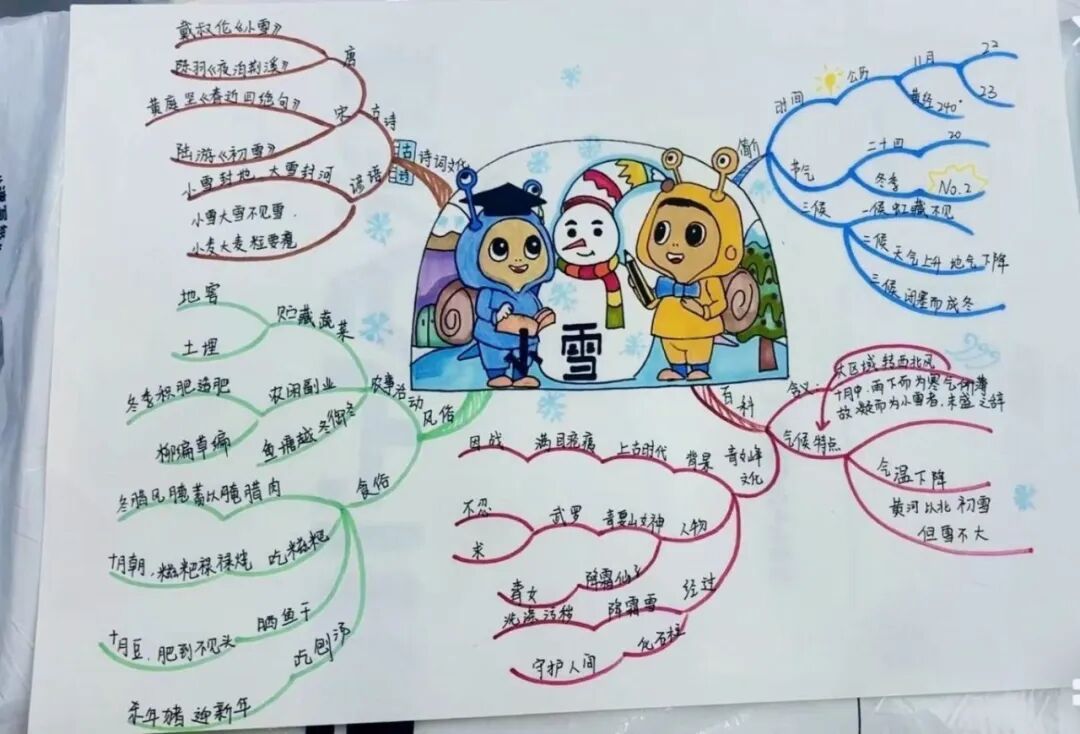 小雪
简介
时间
公历
11月
22
23
黄经240°
节气
二十四
20
冬季
No.2
三候
一候 虹藏不见
二候 天气上升 地气下降
三候 闭塞而成冬
百科
含义:
大区域 转西北风
十月中,雨下而为寒气所薄
故凝而为小雪者,未盛之辞
气候特点
气温下降
黄河以北 初雪
但雪不大
青女峰
文化
背景
上古时代
满目疮痍
因战
人物
青要山女神
武罗
不忍
求
降霜仙子
青女
经过
降霜雪
洗涤污秽
化石柱
守护人间
风俗
农事活动
贮藏蔬菜
地窖
土埋
农闲副业
冬季积肥造肥
柳编草编
鱼塘越冬御冬
食俗
腌腊肉
冬腊风腌 蓄以
吃糍粑
十月朝,糍粑禄禄烧
晒鱼干
十月豆,肥到不见头
吃刨汤
杀年猪 迎新年
古诗
诗词文化
古诗
唐
戴叔伦《小雪》
陈羽《夜泊荆溪》
宋
黄庭坚《春近四绝句》
陆游《初雪》
谚语
小雪封地,大雪封河
小雪大雪不见雪,
小麦大麦粒要瘪